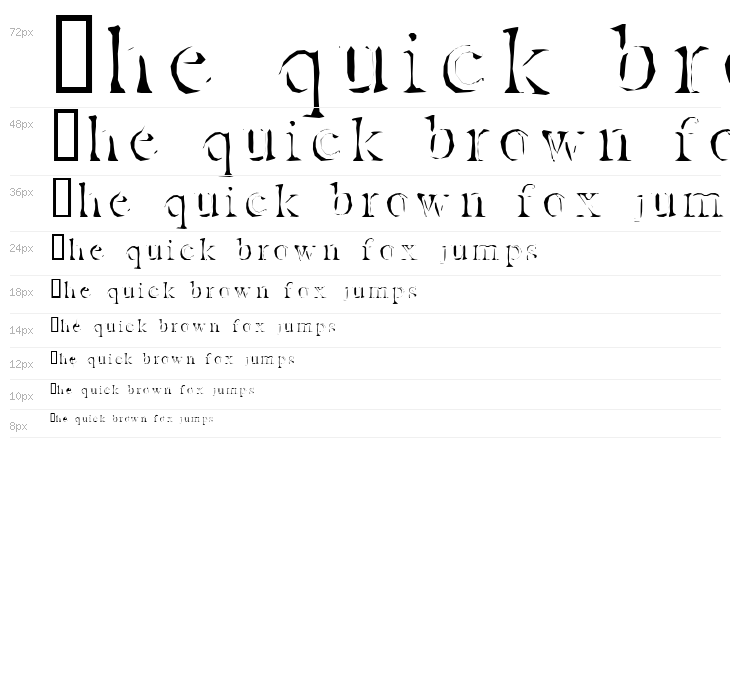 72px ▯he quick bro
48px ▯he quick brown fo
36px ▯he quick brown fox jum
24px ▯he quick brown fox jumps
18px ▯he quick brown fox jumps
14px ▯he quick brown fox jumps
12px ▯he quick brown fox jumps
10px ▯he quick brown fox jumps
8px ▯he quick brown fox jumps